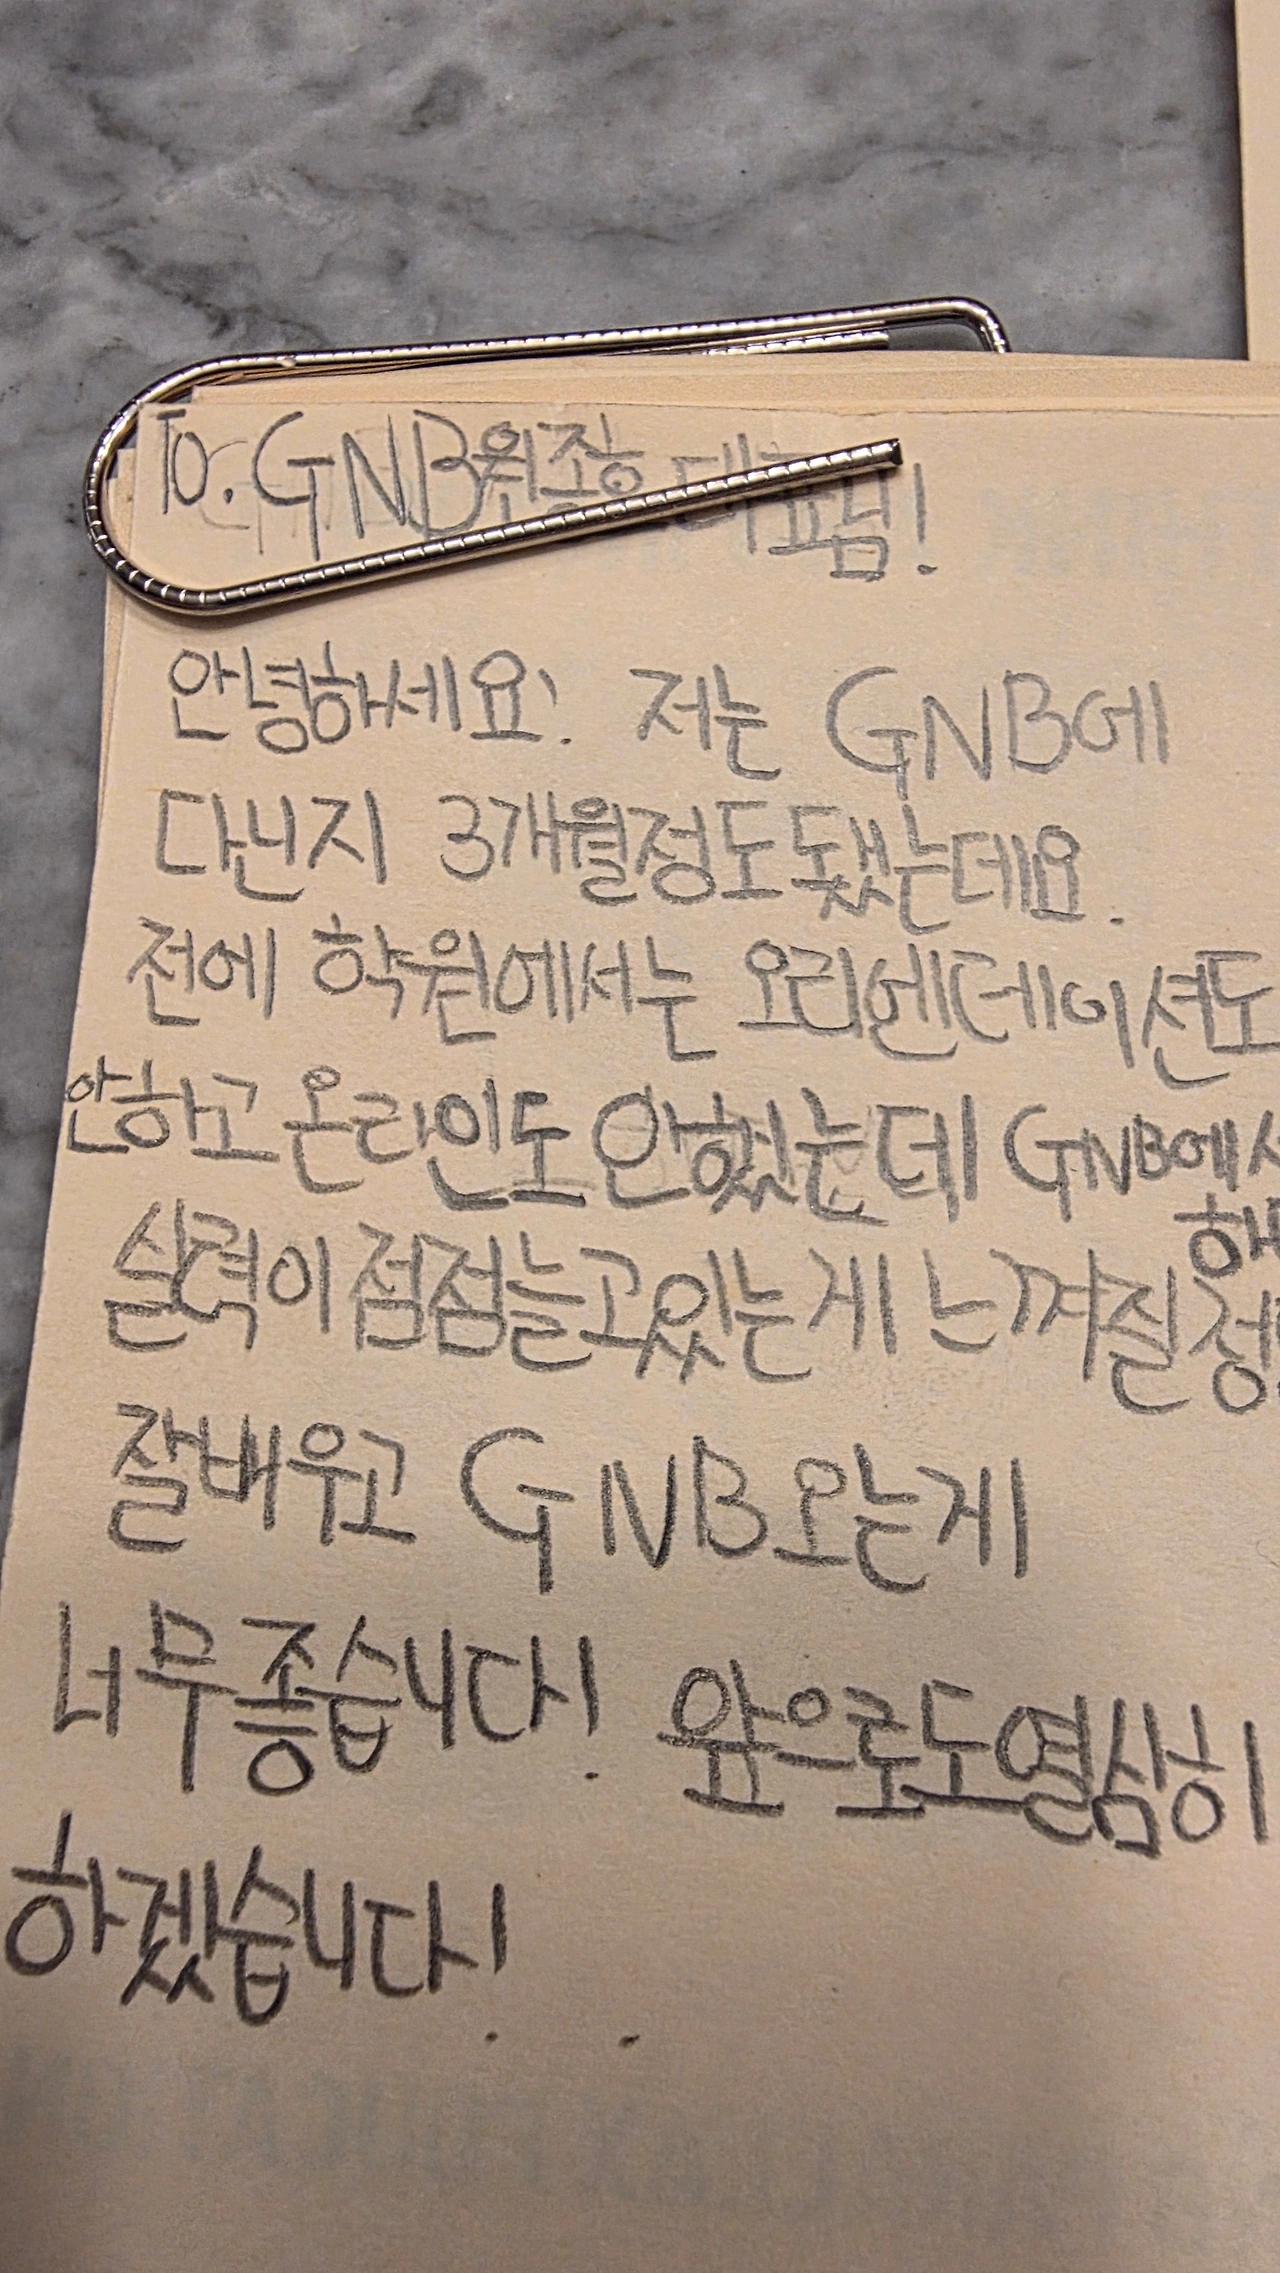 To. GNB원장 대표님!
안녕하세요! 저는 GNB에
다닌지 3개월정도 됐는데요.
전에 학원에서는 오리엔데이션도
안하고 온라인도 안했는데 GNB에서
해
실력이 점점늘고있는게 느껴질정
잘배우고 GNB오는게
너무좋습니다! 앞으로도열심히
하겠습니다!